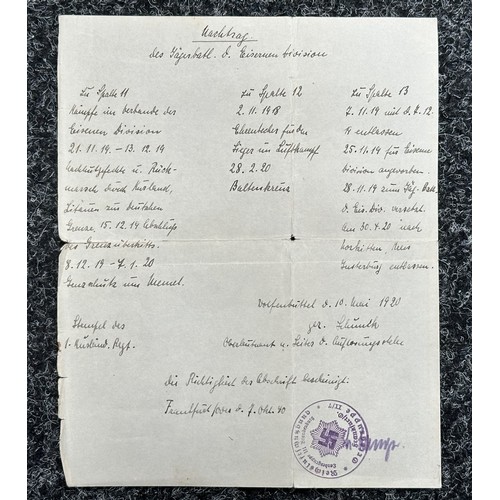 Nachtrag
des Jägerbatl. d. Eisernen Division
Zu Spalte 11
Kämpfe im Verbande des
Eisernen Division
21.11.19. – 13.12.19
Nachhutgefechte u. Rück-
marsch durch Kurland,
Litauen zur deutschen
Grenze, 15.12.19 Abschluss
des Grenzübertritts.
8.12.19 – 7.1.20
Grenzschutz um Memel.
Stempel des
1. Kurländ. Regt.
Zu Spalte 12
2.11.1918
Ehrenbecher für den
Sieger im Luftkampf
28.2.20
Baltenkreuz
Zu Spalte 13
7.11.19 mit D.F.12.
entlassen
25.11.19 für Eiserne
Division angeworben.
28.11.19 zum Jäg. Batl.
d. Eis. Div. versetzt.
Am 30.4.20 nach
Kreis
Insterburg entlassen.
Wolfenbüttel d. 10. Mai 1920
gez.
Oberleutnant u. Leiter d. Auflösungsstelle
Die Richtigkeit der Abschrift bescheinigt:
Frankfurt/Oder d. 7. Okt. 40